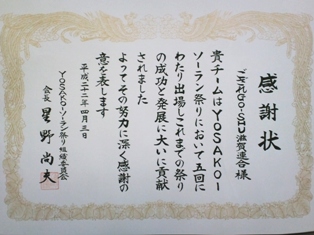 感謝状
こげんGO-SHU滋賀連合様
貴チームはYOSAKOI
ソーラン祭りにおいて五回に
わたり出場しこれまでの祭り
の成功と発展に大いに貢献
されました
よってその努力に深く感謝の
意を表します
平成二十二年四月三日
YOSAKOIソーラン祭り組織委員会
会長 星野尚夫